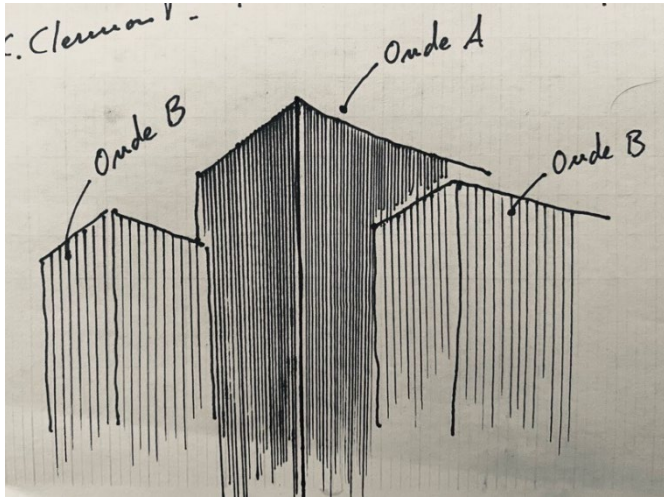 C. Clermont.
Onde A
Onde B
Onde B